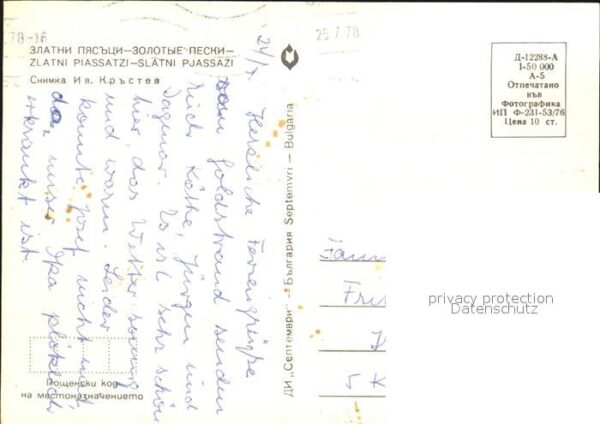 78-16
25.7.78
ЗЛАТНИ ПЯСЪЦИ—ЗОЛОТЫЕ ПЕСКИ—
ZLATNI PIASSATZI—SLATNI PJASSAZI
Снимка Ив. Кръстев
24/7.
Herzliche Feriengrüße
vom Goldstrand senden
Euch Käthe, Jürgen und
Dagmar. Es ist sehr schön
hier, das Wetter sonnig
und warm. Leider
konnte Josef nicht mit
da, unser Opa plötzlich
erkrankt ist.
Пощенски код
на местоназначението
ДИ „Септември" — България Septemvri — Bulgaria
Д-12288-А
1-50 000
А-5
Отпечатано
във
Фотографика
ИП Ф-231-53/76
Цена 10 ст.
Fam
Fri
5 K
privacy protection
Datenschutz